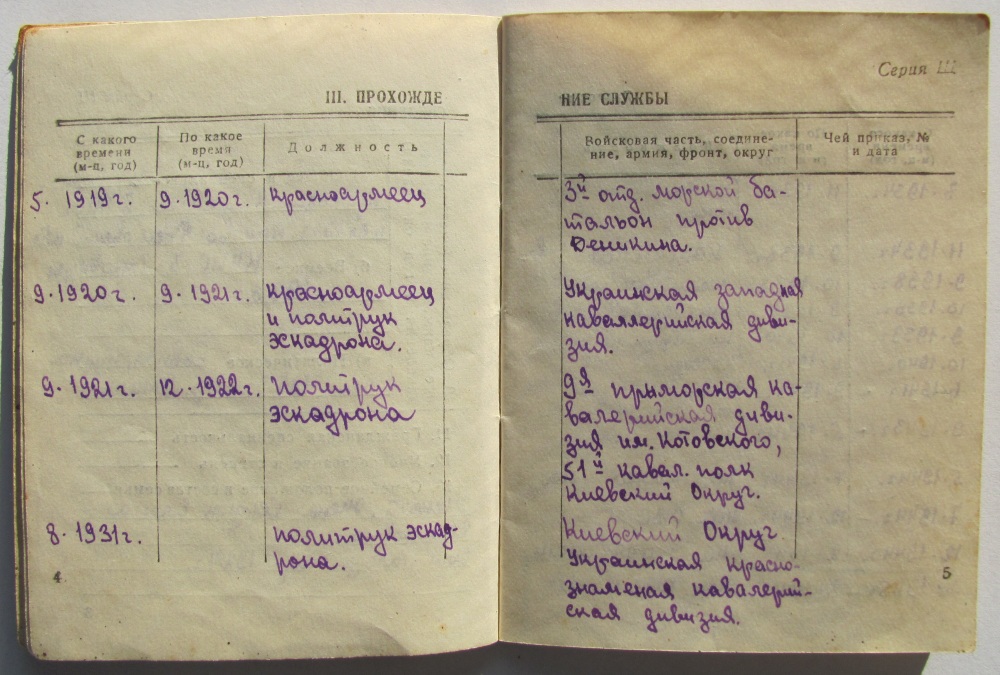 Серия Ш
III. ПРОХОЖДЕ
НИЕ СЛУЖБЫ
С какого времени (м-ц, год)
По какое время (м-ц, год)
Должность
Войсковая часть, соедине-
ние, армия, фронт, округ
Чей приказ, №
и дата
5. 1919г. 9.1920г. красноармеец
3й отд. морской ба-
тальон против
Деникина.
9.1920г. 9.1921г. красноармеец
и политрук
эскадрона.
Украинская западная
каваллерийская диви-
зия.
9.1921г. 12.1922г. политрук
эскадрона
9я прыморская ка-
валерийская диви-
зия им. Котовского,
51й кавал. полк
Киевский Округ.
8.1931г. политрук эскад-
рона.
Киевский Округ
Украинская красно-
знаменая кавалерий-
ская дивизия.
4
5